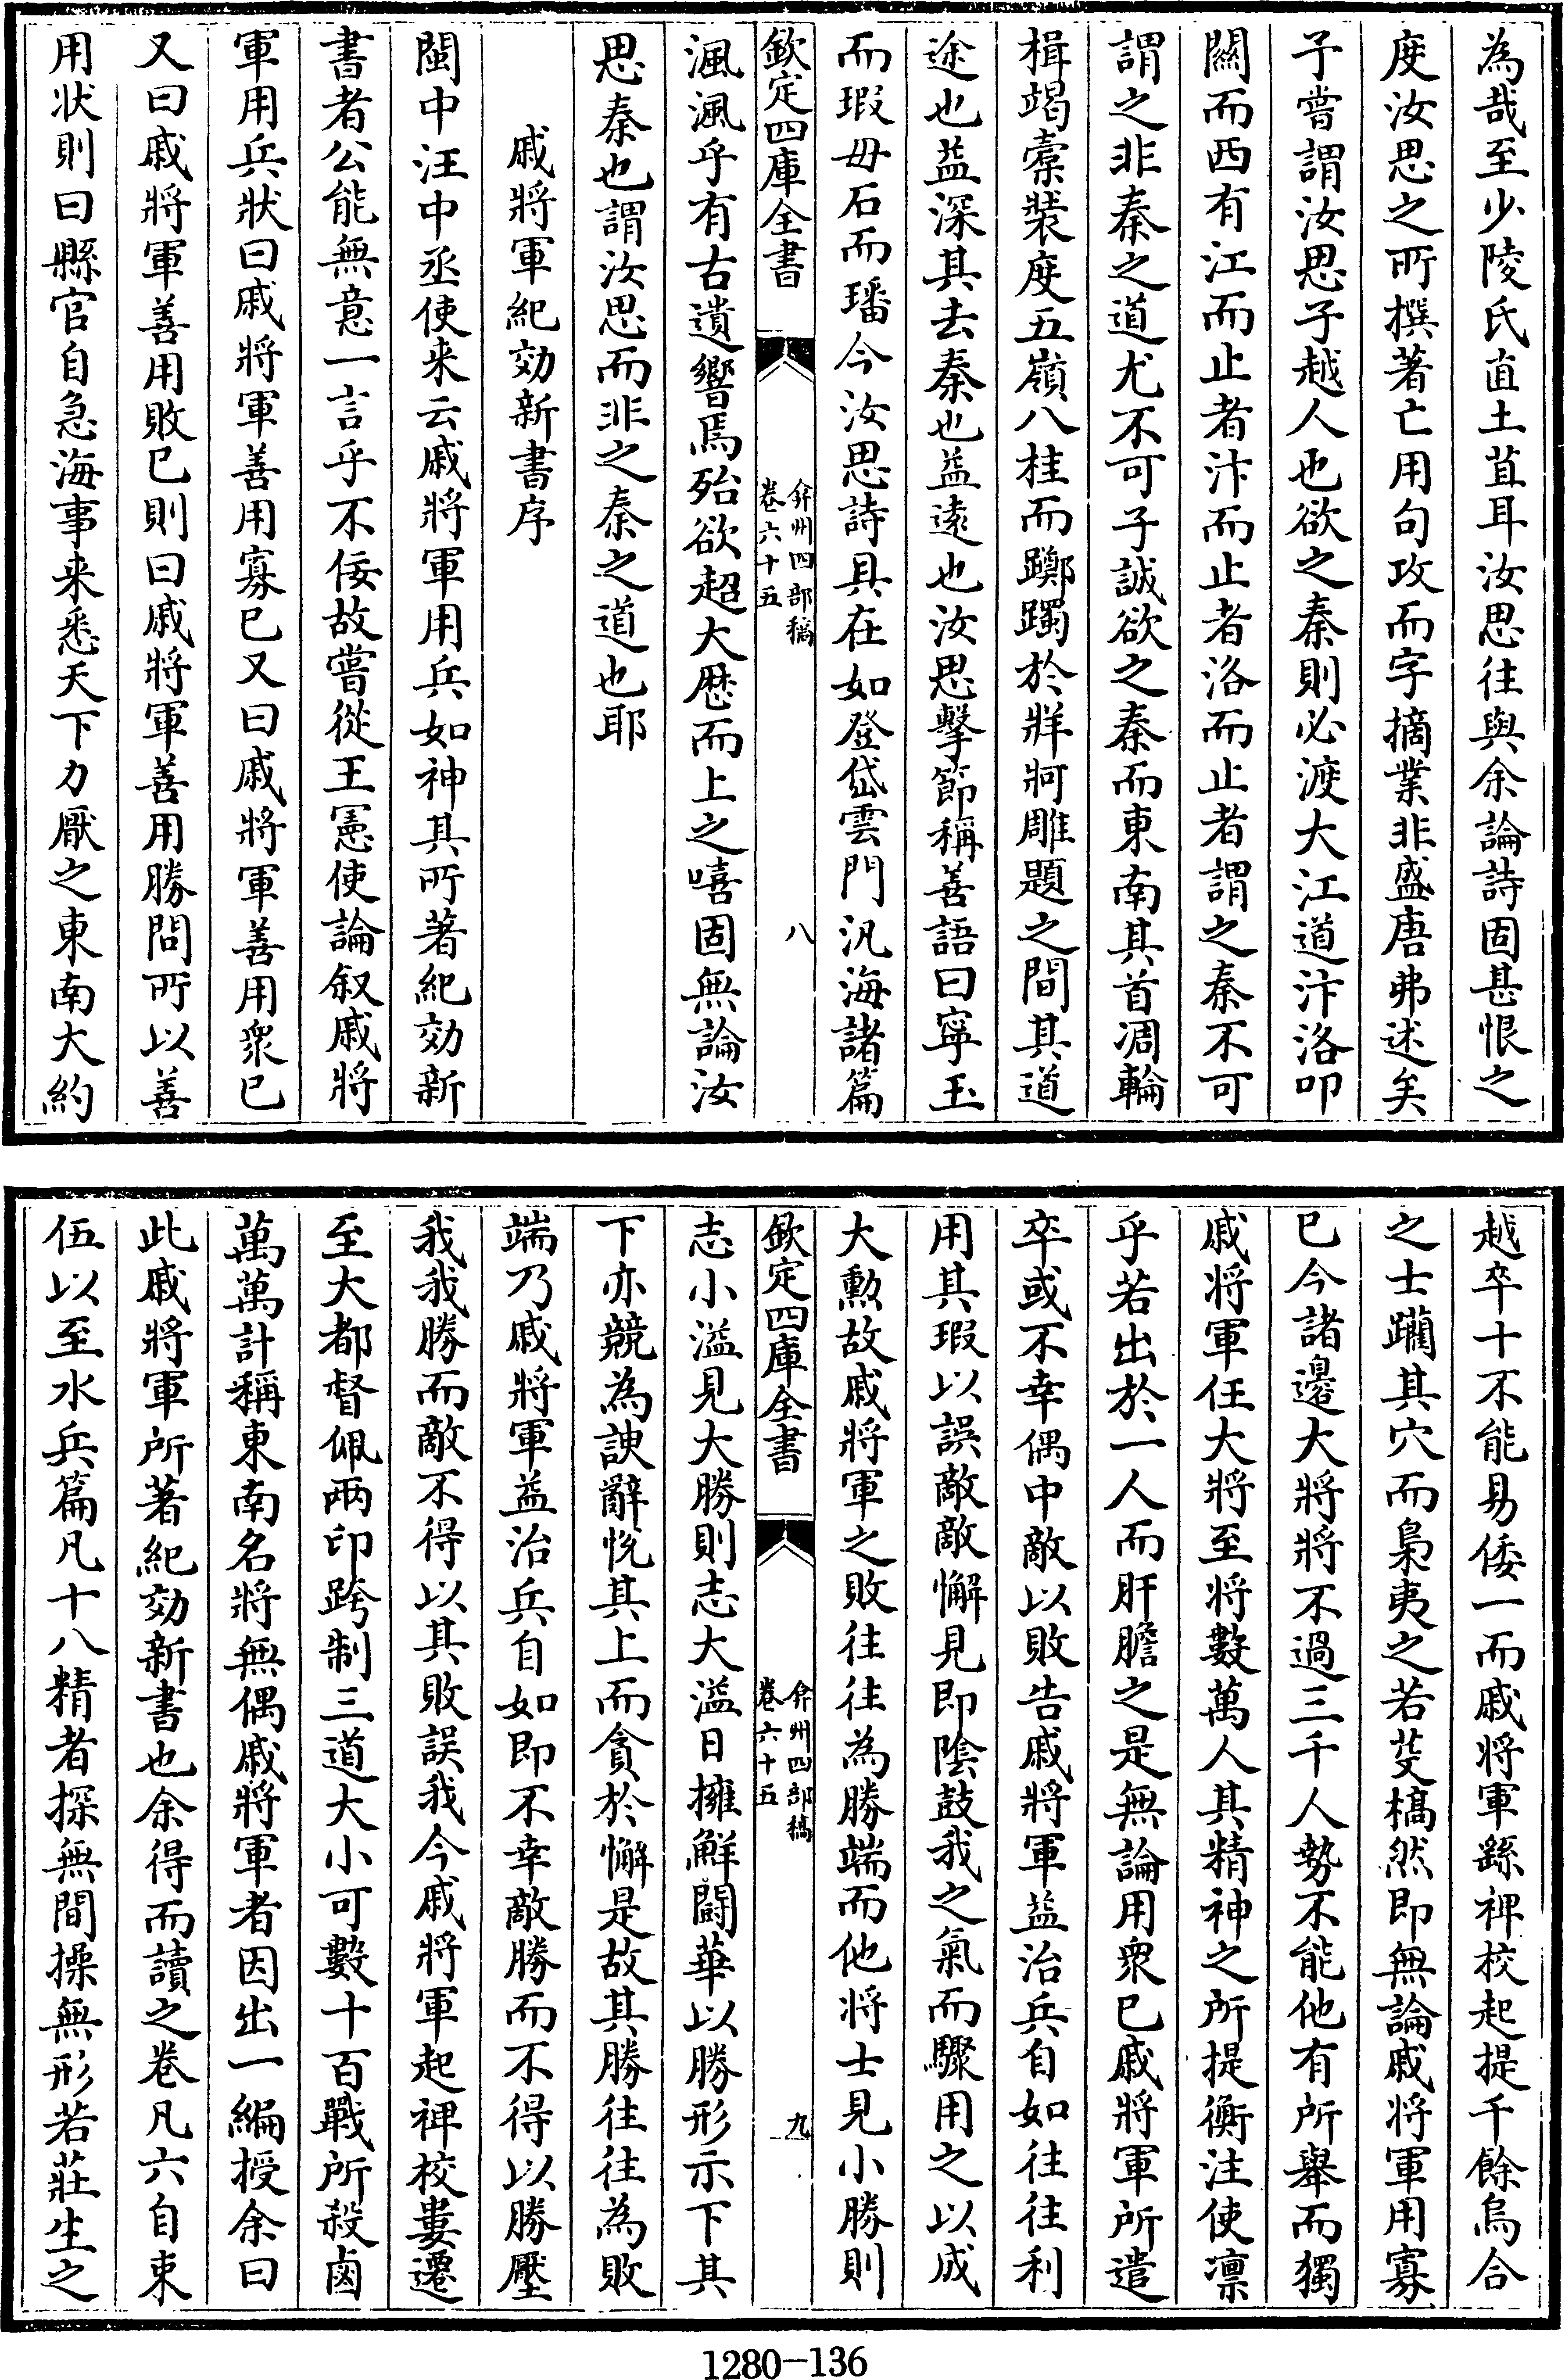 為哉至少陵氏直土苴耳汝思往與余論詩固甚恨之
度汝思之所撰著亡用句攻而字摘業非盛唐弗述矣
子嘗謂汝思子越人也欲之秦則必渡大江道汴洛叩
關而西有江而止者汴而止者洛而止者謂之秦不可
謂之非秦之道尤不可子誠欲之秦而東南其首凋輪
楫竭橐裝度五嶺八桂而躑躅於牂牁雕題之間其道
途也益深其去秦也益遠也汝思擊節稱善語曰寧玉
而瑕毋石而璠今汝思詩具在如登岱雲門汎海諸篇
欽定四庫全書
弇州四部稿
卷六十五
八
渢渢乎有古遺響焉殆欲超大歷而上之嘻固無論汝
思秦也謂汝思而非之秦之道也耶
戚將軍紀効新書序
閩中汪中丞使来云戚將軍用兵如神其所著紀効新
書者公能無意一言乎不佞故嘗從王憲使論叙戚將
軍用兵狀曰戚將軍善用寡已又曰戚將軍善用衆已
又曰戚將軍善用敗已則曰戚將軍善用勝問所以善
用状則曰縣官自急海事来悉天下力厭之東南大約
越卒十不能易倭一而戚将軍繇裨校起提千餘烏合
之士躪其穴而梟夷之若芟槁然即無論戚将軍用寡
已今諸邊大將將不過三千人勢不能他有所舉而獨
戚将軍任大將至将數萬人其精神之所提衡注使凛
乎若出於一人而肝膽之是無論用衆已戚將軍所遣
卒或不幸偶中敵以敗告戚將軍益治兵自如往往利
用其瑕以誤敵敵懈見即陰鼓我之氣而驟用之以成
大勲故戚將軍之敗往往為勝端而他将士見小勝則
欽定四庫全書
弇州四部稿
卷六十五
九
志小溢見大勝則志大溢日擁鮮鬪華以勝形示下其
下亦競為諛辭悅其上而貪於懈是故其勝往往為敗
端乃戚將軍益治兵自如即不幸敵勝而不得以勝壓
我我勝而敵不得以其敗誤我今戚將軍起裨校婁遷
至大都督佩兩印跨制三道大小可數十百戰所殺鹵
萬萬計稱東南名將無偶戚將軍者因出一編授余曰
此戚將軍所著紀効新書也余得而讀之卷凡六自束
伍以至水兵篇凡十八精者探無間操無形若莊生之
1280-136